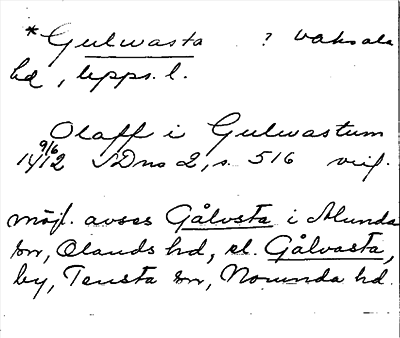 *Gulwasta ? Vaksala
hd, Upps. l.
Olaff i Gulwastum
9/6
1412 SDns 2, s. 516
möjl. avses Gålvsta i Alunda
sn, Olands hd, el. Gålvasta,
by, Tensta sn, Norunda hd.